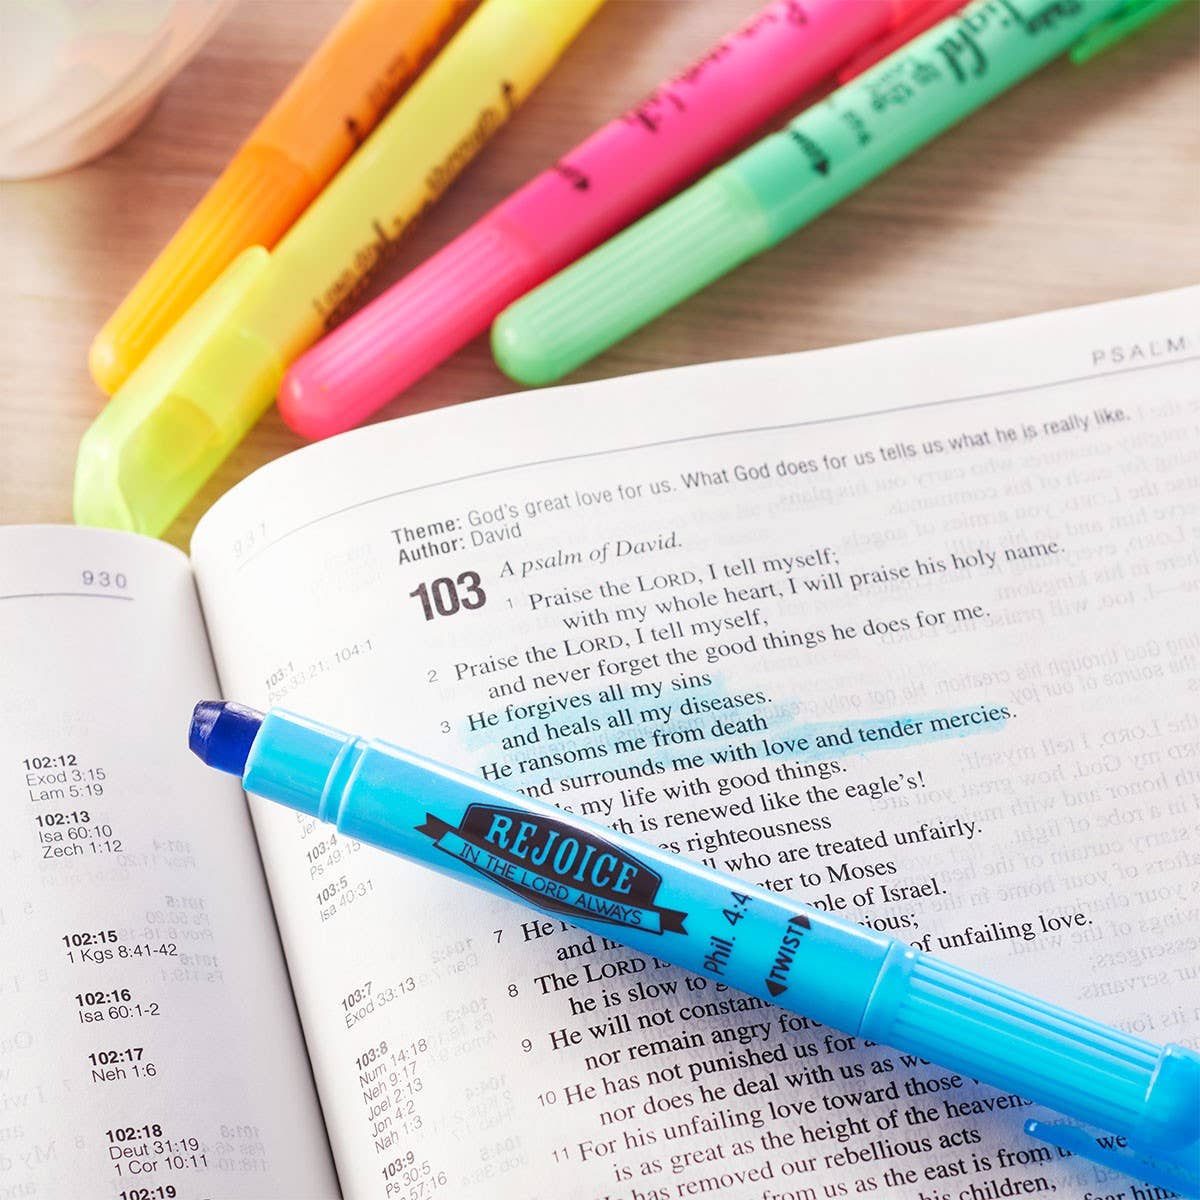 PSALM
931
Theme: God's great love for us. What God does for us tells us what he is really like.
Author: David
103
A psalm of David.
1 Praise the LORD, I tell myself;
with my whole heart, I will praise his holy name.
2 Praise the LORD, I tell myself,
and never forget the good things he does for me.
3 He forgives all my sins
and heals all my diseases.
He ransoms me from death
and surrounds me with love and tender mercies.
my life with good things.
is renewed like the eagle's!
righteousness
who are treated unfairly.
to Moses
of Israel.
7 He
and
of unfailing love.
8 The LORD is
he is slow to
9 He will not
nor remain angry
10 He has not punished us for
nor does he deal with us as we
11 For his unfailing love toward those
is as great as the height of the heavens
has removed our rebellious acts
from us as the east is from
we
his children,
103:1
Pss 33:21; 104:1
103:4
Ps 49:15
103:5
Isa 40:31
103:7
Exod 33:13
103:8
Num 14:18
Neh 9:17
Joel 2:13
Jon 4:2
Nah 1:3
103:9
Ps 30:5
57:16
930
102:12
Exod 3:15
Lam 5:19
102:13
Isa 60:10
Zech 1:12
102:15
1 Kgs 8:41-42
102:16
Isa 60:1-2
102:17
Neh 1:6
102:18
Deut 31:19
1 Cor 10:11
102:19
REJOICE
IN THE LORD ALWAYS
Phil. 4:4
TWIST